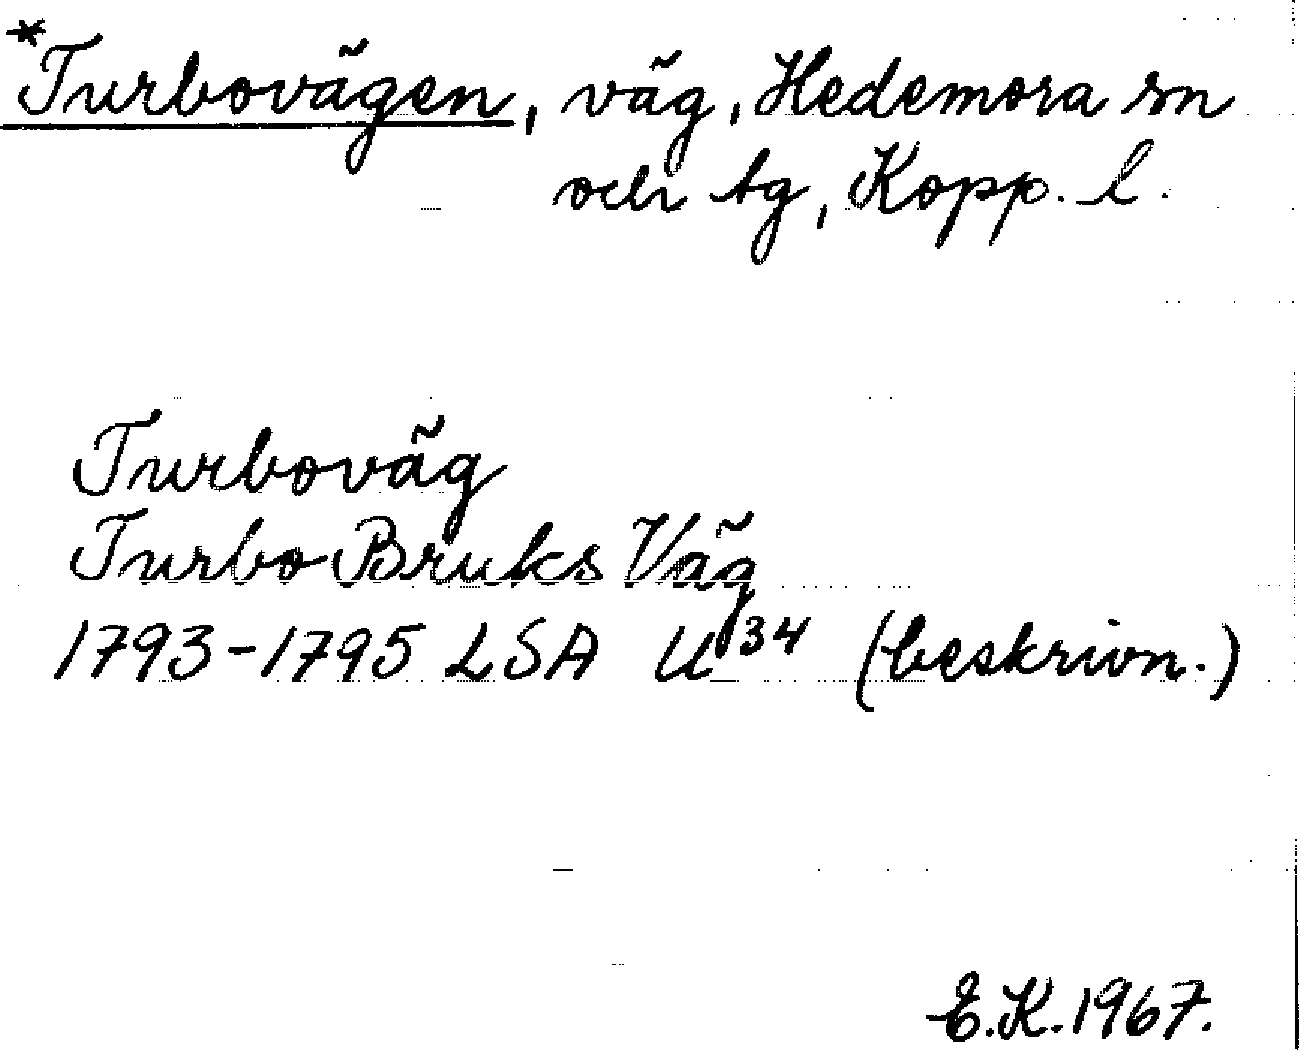 *Turbovägen, väg, Hedemora sn
och tg, Kopp. l.
Turboväg
Turbo Bruks Väg
1793-1795 LSA U34 (beskrivn.)
E.K. 1967.